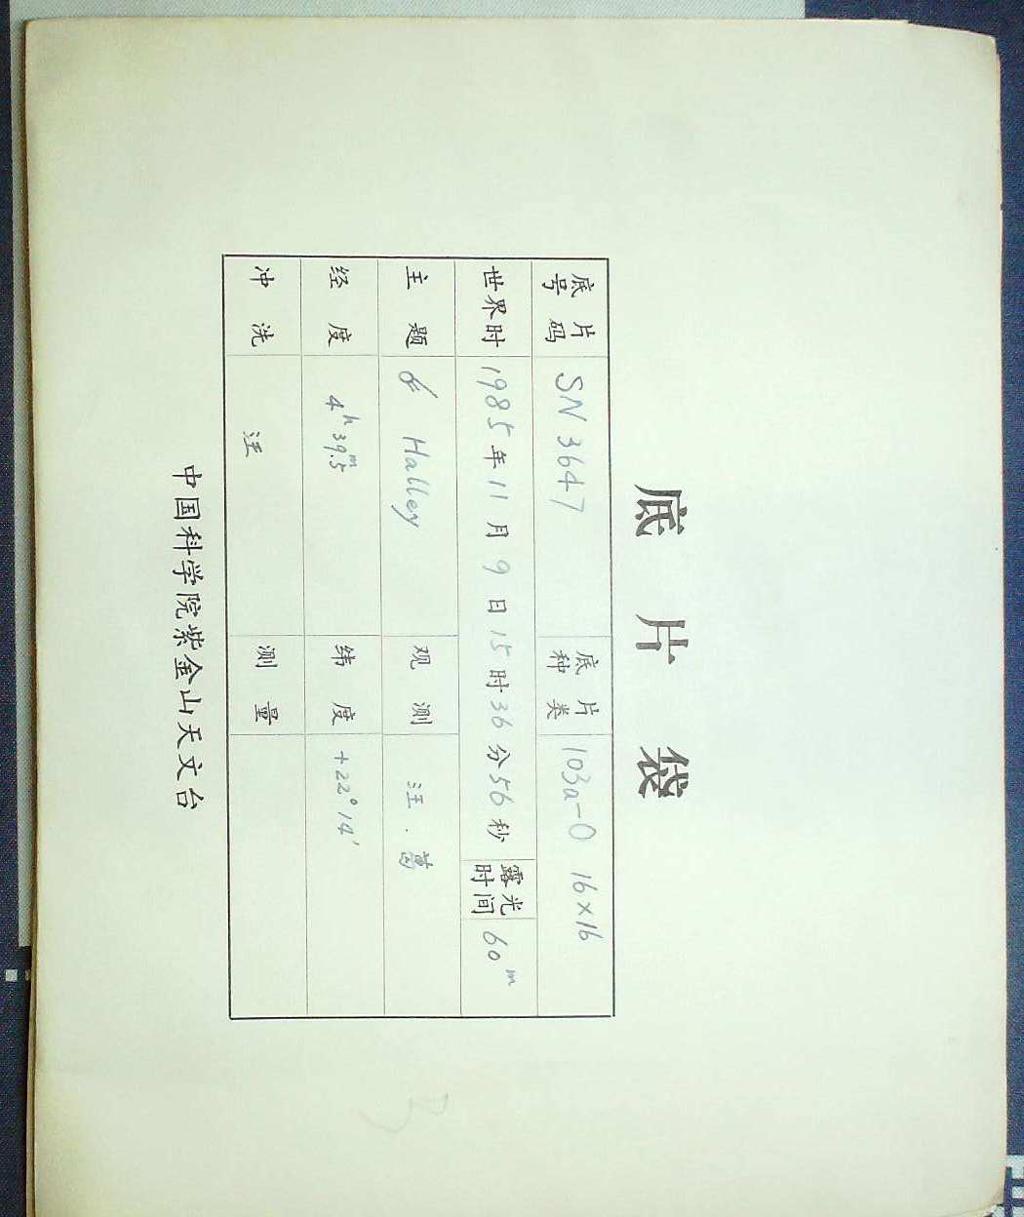 底 片 袋
底片号码 SN 3647 底片种类 103a-O 16×16
世界时 1985年11月9日15时36分56秒 露光时间 60ᵐ
主题 ☄ Halley 观测 汪.葛
经度 4ʰ39ᵐ.5 纬度 +22°14′
冲洗 汪 测量
中国科学院紫金山天文台